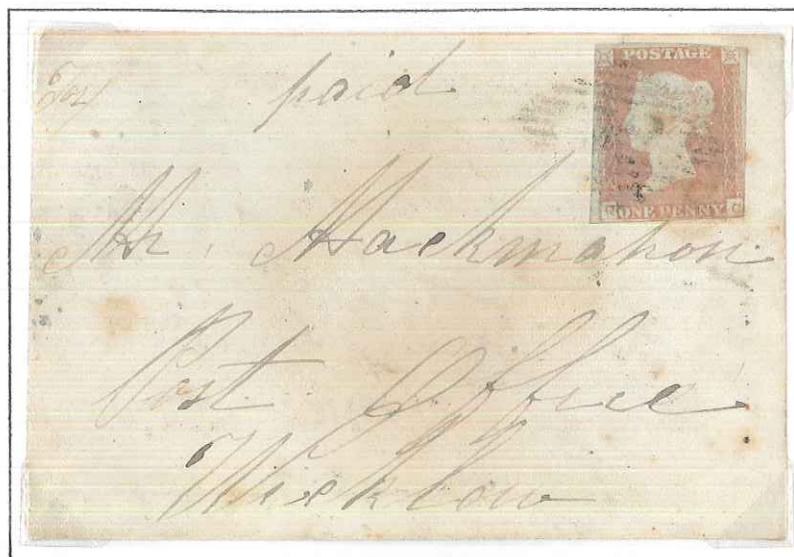 paid
POSTAGE
ONE PENNY
Mr. Mackmahon
Post Office
Wicklow